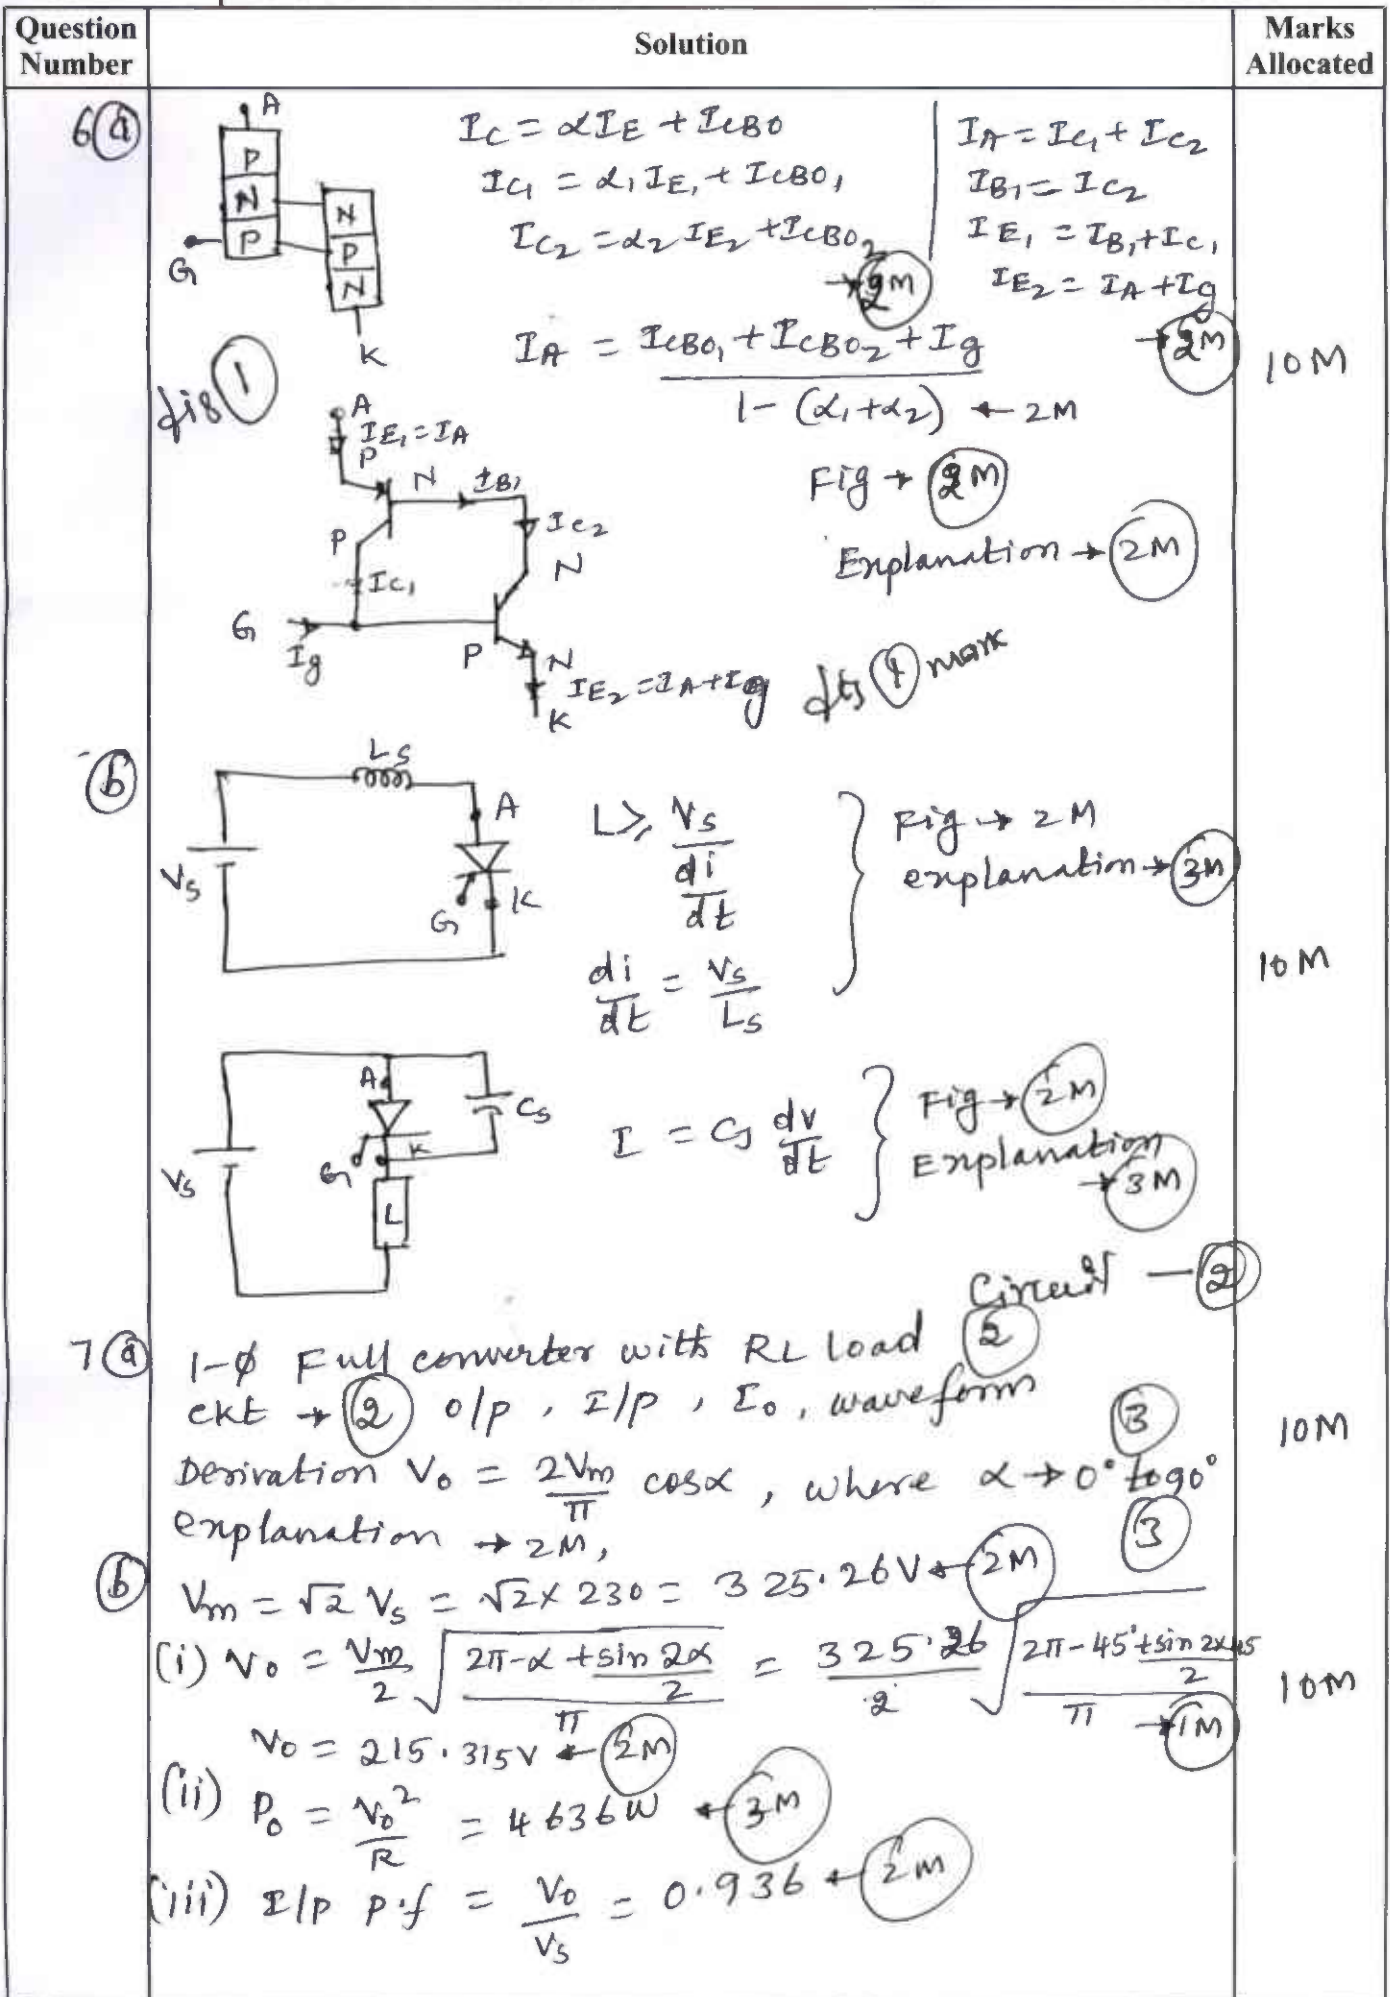 Question Number
Solution
Marks Allocated
6(a)
A
P
N
P
G
N
P
N
K
I_C = αI_E + I_CBO
I_C1 = α1 I_E1 + I_CBO1
I_C2 = α2 I_E2 + I_CBO2
→ 2M
I_A = I_C1 + I_C2
I_B1 = I_C2
I_E1 = I_B1 + I_C1
I_E2 = I_A + I_g
→ 2M
10M
I_A = (I_CBO1 + I_CBO2 + I_g) / (1 - (α1 + α2)) ← 2M
fig 1
A
I_E1 = I_A
P
N
I_B1
I_C2
P
N
I_C1
G
I_g
P
N
I_E2 = I_A + I_g
K
Fig → 2M
Explanation → 2M
1 mark
(b)
L_S
A
V_S
G
K
L ≥ V_S / (di/dt)
di/dt = V_S / L_S
Fig → 2M
explanation → 3M
10M
A
C_S
G
K
V_S
L
I = C_S dv/dt
Fig → 2M
Explanation → 3M
Circuit — 2
7(a) 1-ϕ Full converter with RL load 2
ckt → 2 o/p, I/p, I_0, waveform 3
Derivation V_0 = 2V_m/π cosα, where α → 0° to 90°
explanation → 2M, 3
10M
(b) V_m = √2 V_S = √2 × 230 = 325.26V ← 2M
(i) V_0 = V_m/2 √((2π-α + sin 2α/2)/π) = 325.26/2 √((2π-45° + sin 2×45/2)/π) → 1M
10M
V_0 = 215.315V ← 2M
(ii) P_0 = V_0²/R = 4636W ← 3M
(iii) I/p p.f = V_0/V_S = 0.936 ← 2M